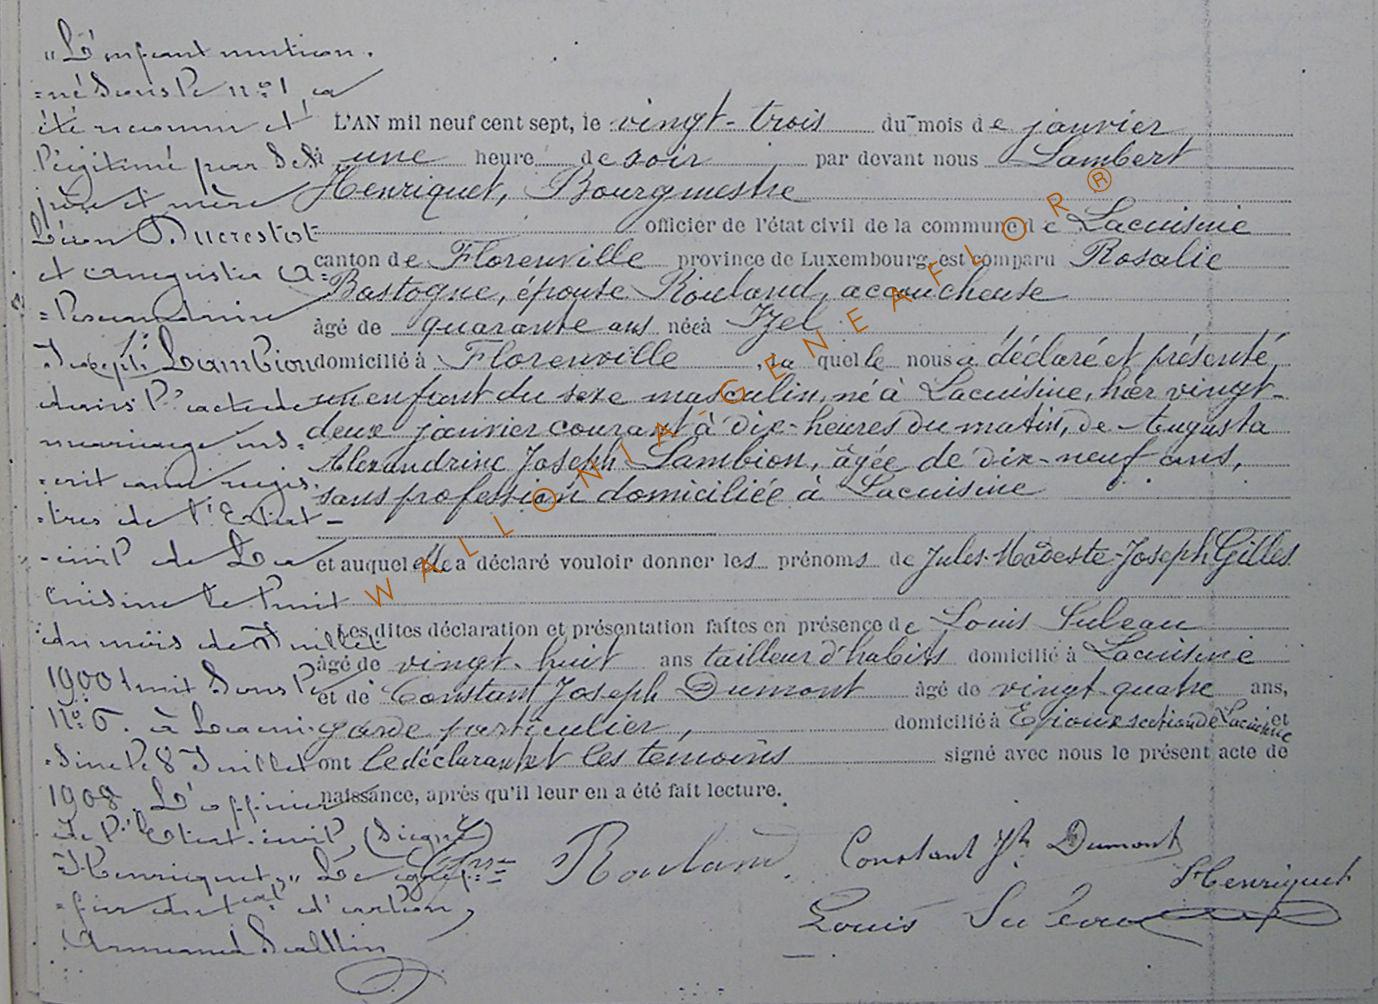 "L'enfant mention-
=né sous le nº 1 a
été reconnu et
légitimé par ses
père et mère
Léon Ducrestot
et Augusta A=
=lexandrine
Joseph Lambion
dans l'acte de
mariage ins=
=crit aux regis-
=tres de l'Etat-
=civil de La
cuisine le huit
du mois de Juillet
1908 huit sous le
nº 6. à Lacui-
=sine le 8 Juillet
1908. L'officier
de l'Etat-civil, (Signé)
Henriquet," Le gref=
=fier du d'arlon,
Armand
L'AN mil neuf cent sept, le vingt-trois du mois de janvier
une heure de soir par devant nous Lambert
Henriquet, Bourgmestre
officier de l'état civil de la commune de Lacuisine
canton de Florenville province de Luxembourg, est comparu Rosalie
Bastogne, épouse Rouland, accoucheuse
âgé de quarante ans née à Izel
domicilié à Florenville, la quelle nous a déclaré et présenté
un enfant du sexe masculin, né à Lacuisine, hier vingt-
deux janvier courant à dix-heures du matin, de Augusta
Alexandrine Joseph Lambion, âgée de dix-neuf ans,
sans profession domiciliée à Lacuisine
et auquel elle a déclaré vouloir donner les prénoms de Jules-Modeste-Joseph Gilles
Les dites déclaration et présentation faites en présence de Louis Suleau
âgé de vingt-huit ans tailleur d'habits domicilié à Lacuisine
et de Constant Joseph Dumont âgé de vingt-quatre ans,
garde particulier, domicilié à Epioux section de Lacuisine et
ont le déclarant et les témoins signé avec nous le présent acte de
naissance, après qu'il leur en a été fait lecture.
Rouland. Constant Jh Dumont
Henriquet
Louis Suleau
WALLONIA-GENEAFLOR®